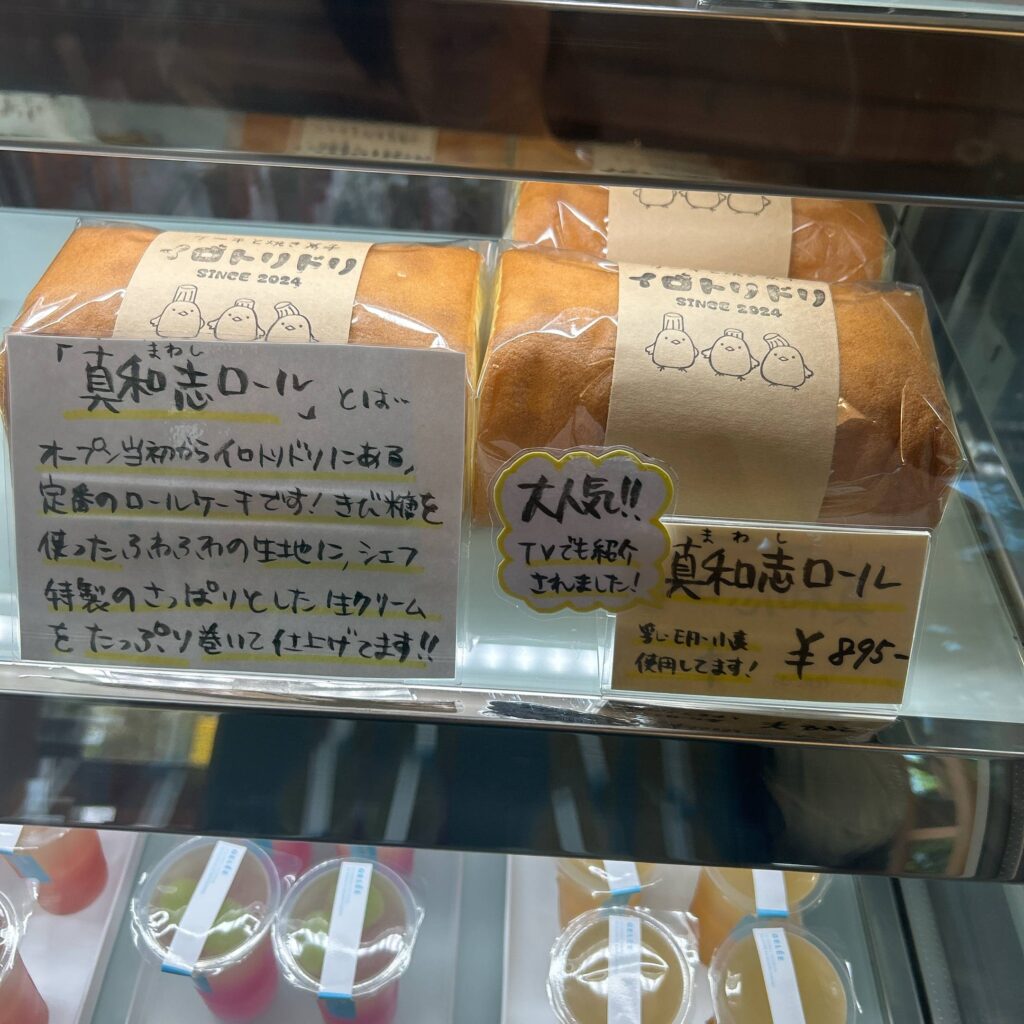 ケーキと焼き菓子
イロトリドリ
SINCE 2024
イロトリドリ
SINCE 2024
まわし
「真和志ロール」とは…
オープン当初からイロトリドリにある,
定番のロールケーキです! きび糖を
使ったふわふわの生地に, シェフ
特製のさっぱりとした生クリーム
をたっぷり巻いて仕上げてます!!
大人気!!
TVでも紹介
されました!
まわし
真和志ロール
乳・卵・小麦
使用してます!
¥895-
GELÉE
GELÉE
GELÉE
GELÉE